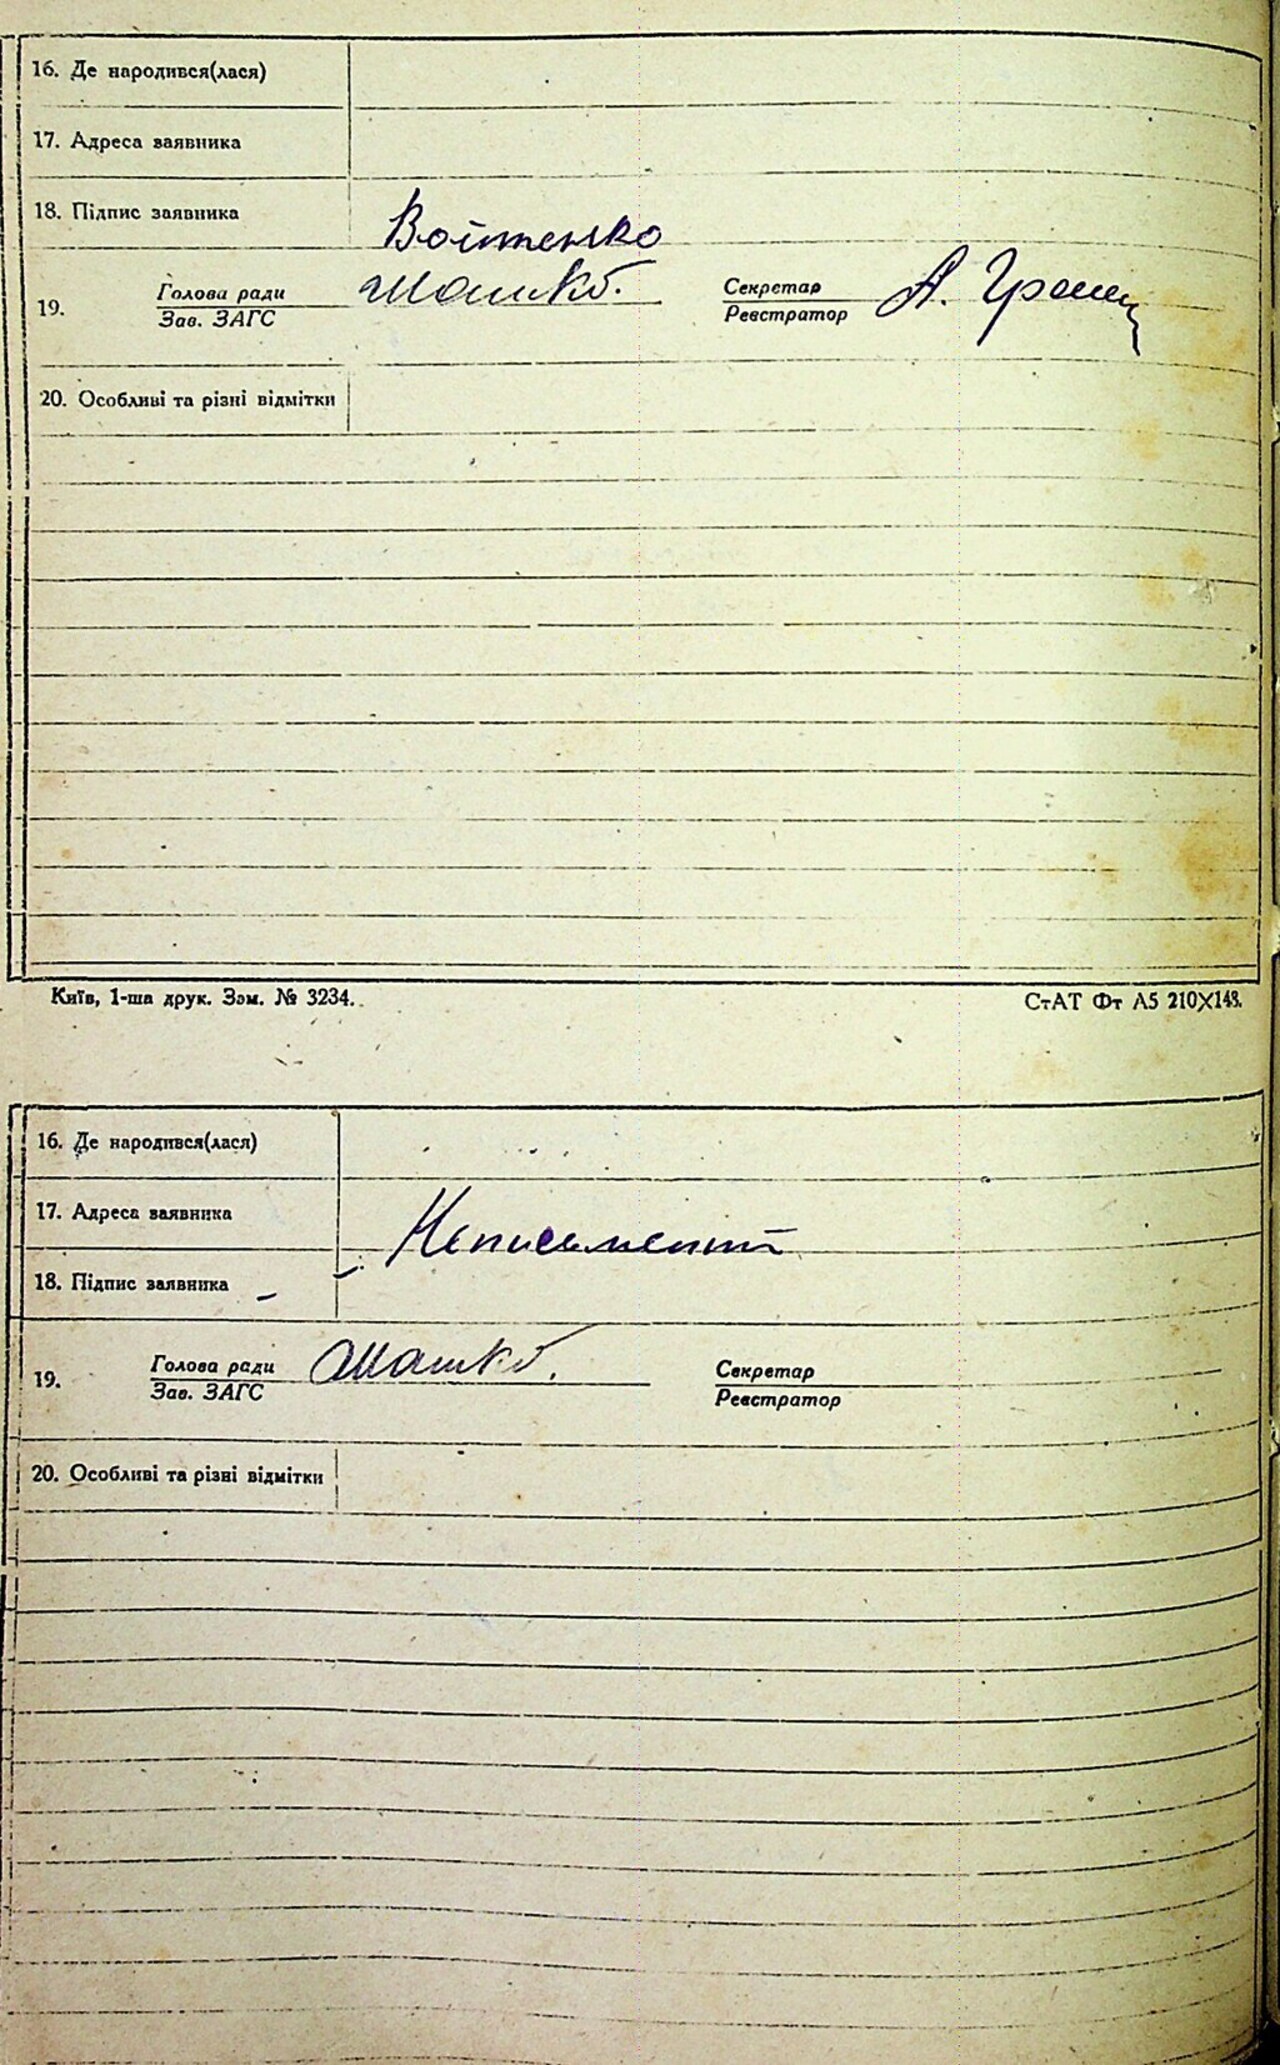 16. Де народився(лася)
17. Адреса заявника
18. Підпис заявника Войтенко
19. Голова ради Секретар
Зав. ЗАГС Реєстратор
20. Особливі та різні відмітки
Київ, 1-ша друк. Зам. № 3234. СтАТ Фт А5 210Х148.
16. Де народився(лася)
17. Адреса заявника
18. Підпис заявника
19. Голова ради Секретар
Зав. ЗАГС Реєстратор
20. Особливі та різні відмітки